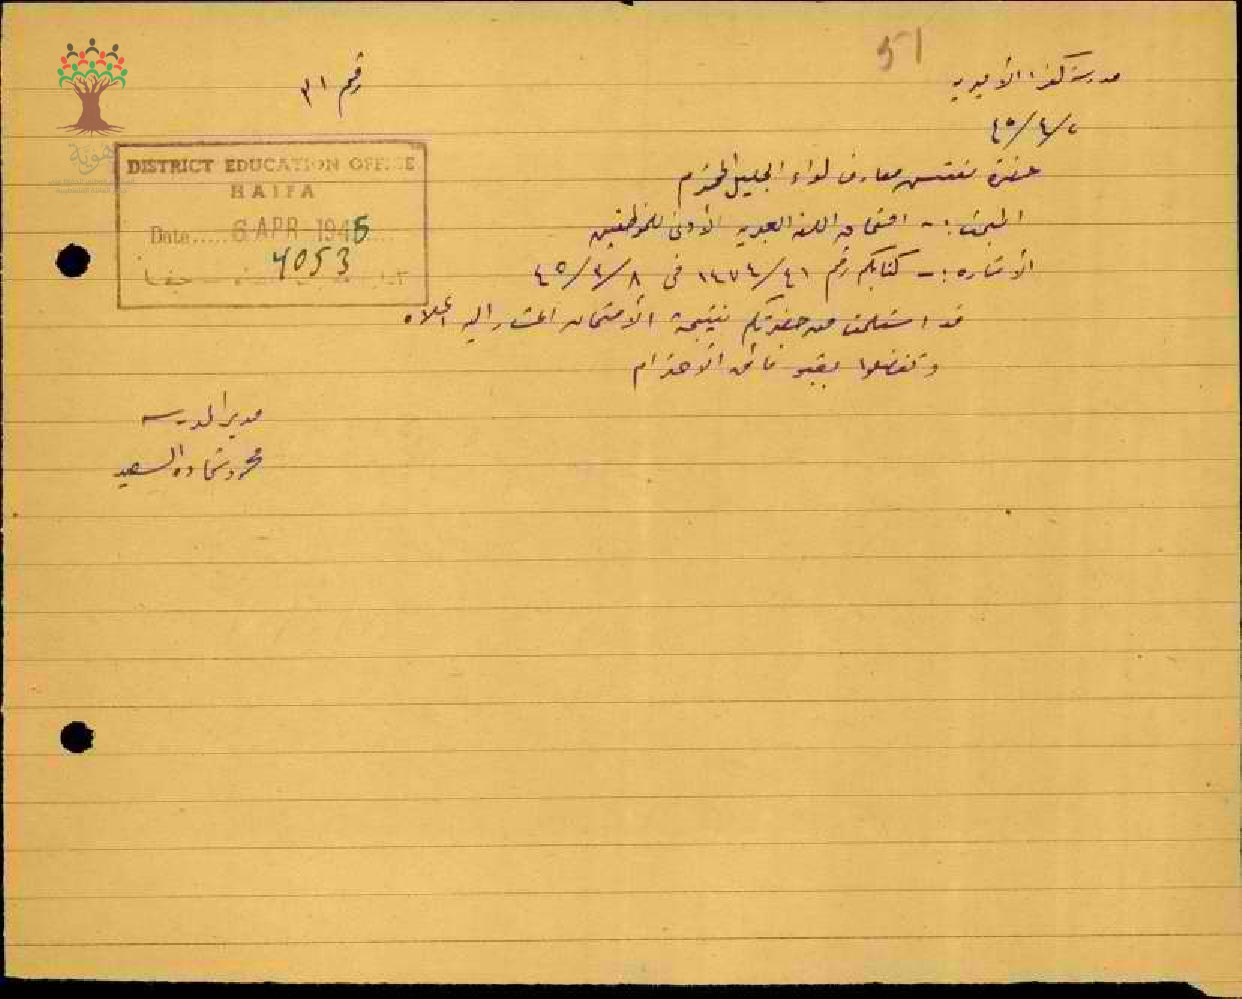 51
مدرسة كفرا الأميرية
رقم ٣١
٤٥/٤/٢
DISTRICT EDUCATION OFFICE
HAIFA
Date..... 6 APR 1945
4053
حضرة مفتش معارف لواء الجليل المحترم
المبحث :- امتحان اللغة العبرية الأدنى للموظفين
الأشارة :- كتابكم رقم ١٤٧٤/٤١ في ٤٥/٣/٨
قد استلمت من حضرتكم نتيجة الأمتحان المشار اليه اعلاه
وتفضلوا بقبول فائق الاحترام
مدير المدرسة
محمود شحاده السعيد
هوية